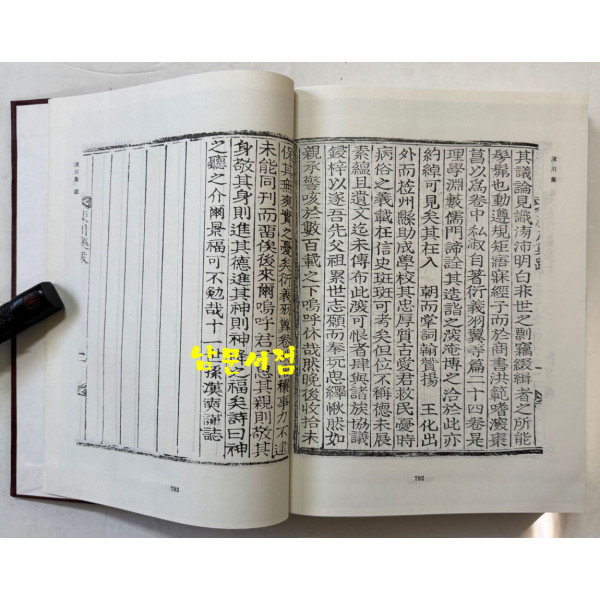 凍川集
其議論見識沛明白非世之剽竊綴緝者之所能
學髣也動遵規矩寤寐經子而於商書洪範嗜深棗
菖以爲卷中私淑自著衍義羽翼等篇二十四卷是
理學淵藪儒門諦詮其造詣之淡淹博之洽於此亦
約綽可見矣其在入 朝而掌詞翰贊揚 王化出
外而莅州縣助成學校其忠厚質古愛君救民憂時
病俗之義載在信史斑斑可考矣但位不稱德未展
素蘊且遺文迄未傳布此深可恨者肆與諸族協議
鋟梓以遂吾先父祖累世志願而奉玩忠繹愀然如
親承警咳於數百載之下嗚呼休哉然晚後收拾未
792
凍川集 跋
保其無爽實之憂矣衍義羽翼卷 穰事力不逮
未能同刊而留俟後來爾嗚呼君 忘其親則敬其
身敬其身則進其德進其神則神 之福矣詩曰神
之聽之介爾景福可不勉哉十一世孫漢奭謹誌
793
남문서점